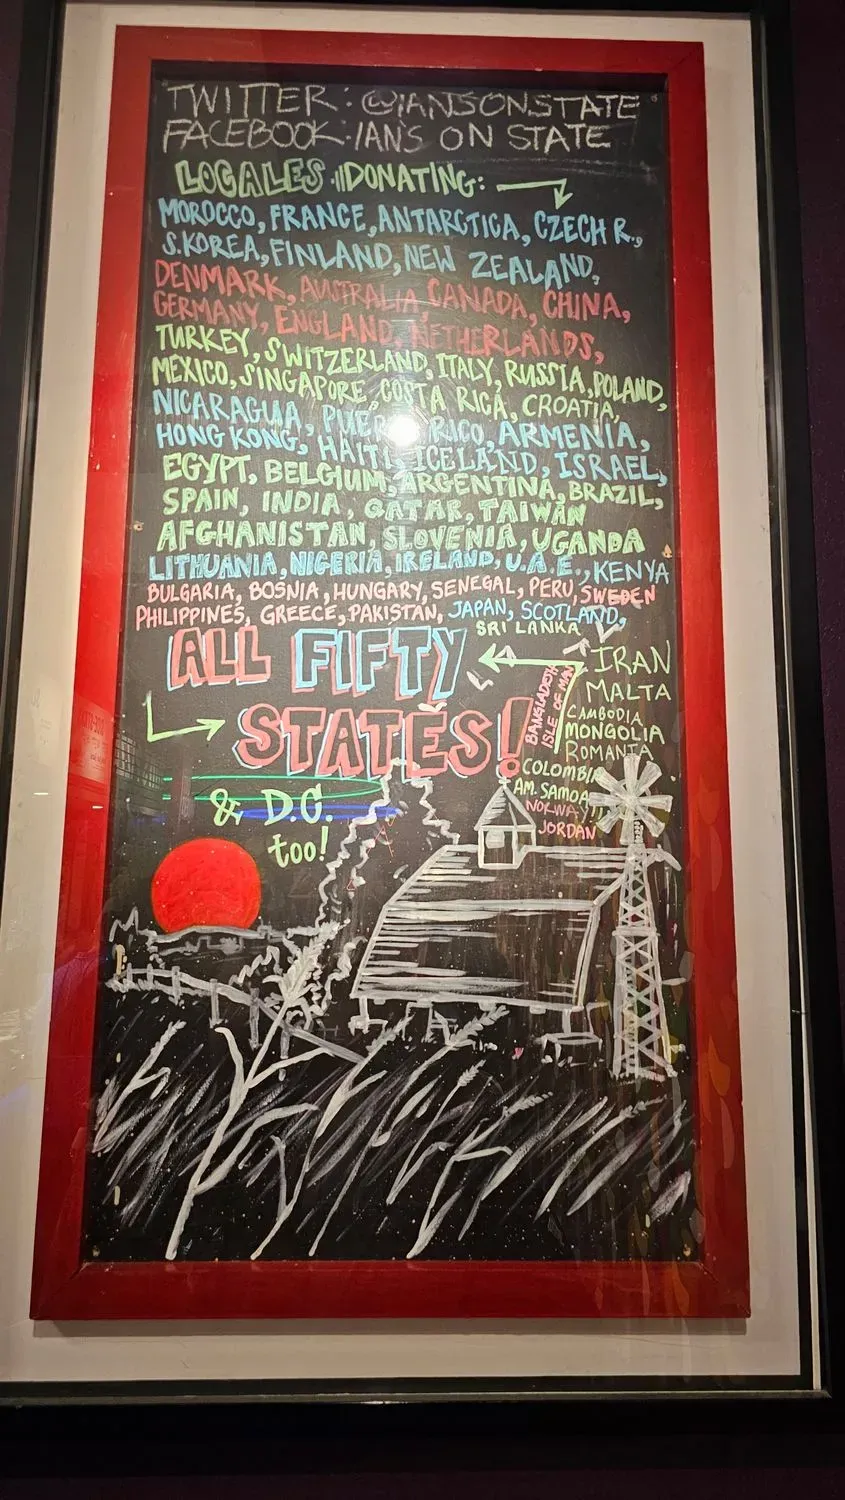 TWITTER: @IANSONSTATE
FACEBOOK: IAN'S ON STATE
LOCALES DONATING:
MOROCCO, FRANCE, ANTARCTICA, CZECH R.,
S.KOREA, FINLAND, NEW ZEALAND,
DENMARK, AUSTRALIA, CANADA, CHINA,
GERMANY, ENGLAND, NETHERLANDS,
TURKEY, SWITZERLAND, ITALY, RUSSIA, POLAND,
MEXICO, SINGAPORE, COSTA RICA, CROATIA,
NICARAGUA, PUERTO RICO, ARMENIA,
HONG KONG, HAITI, ICELAND, ISRAEL,
EGYPT, BELGIUM, ARGENTINA, BRAZIL,
SPAIN, INDIA, QATAR, TAIWAN
AFGHANISTAN, SLOVENIA, UGANDA
LITHUANIA, NIGERIA, IRELAND, U.A.E., KENYA
BULGARIA, BOSNIA, HUNGARY, SENEGAL, PERU, SWEDEN
PHILIPPINES, GREECE, PAKISTAN, JAPAN, SCOTLAND,
SRI LANKA
ALL FIFTY
STATES!
& D.C.
too!
BANGLADESH
ISLE OF MAN
IRAN
MALTA
CAMBODIA
MONGOLIA
ROMANIA
COLOMBIA
AM. SAMOA
NORWAY!!
JORDAN